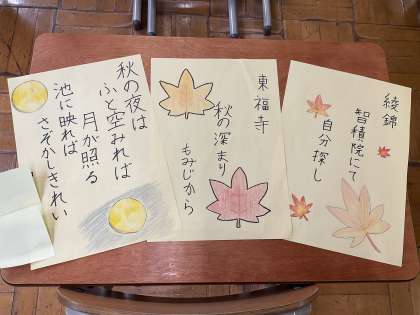 綾錦
智積院にて
自分探し
東福寺
秋の深まり
もみじから
秋の夜は
ふと空みれば
月が照る
池に映れば
さぞかしきれい